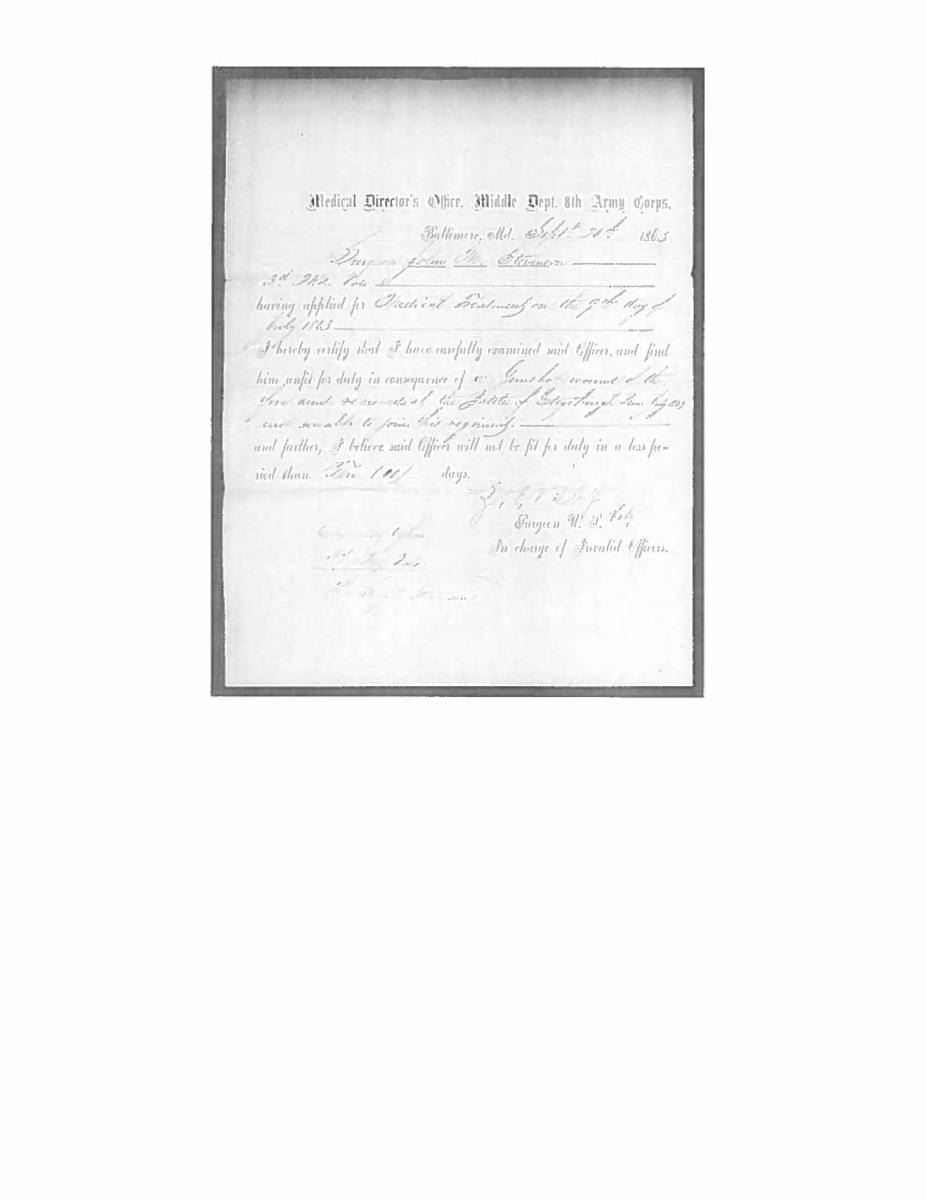 Medical Director's Office, Middle Dept. 8th Army Corps.
Baltimore, Md. Sept. 1863
Surgeon John M. Stevenson
3d Md. Vols
having applied for Medical Treatment on the 9th day of
July 1863
I hereby certify that I have carefully examined said Officer, and find
him unfit for duty in consequence of a Gunshot wound of the
fore arm received at the Battle of Gettysburgh July 1863
and unable to join his regiment.
and further, I believe said Officer will not be fit for duty in a less pe-
riod than Ten days.
Surgeon U. S. Vols,
In charge of Invalid Officers.